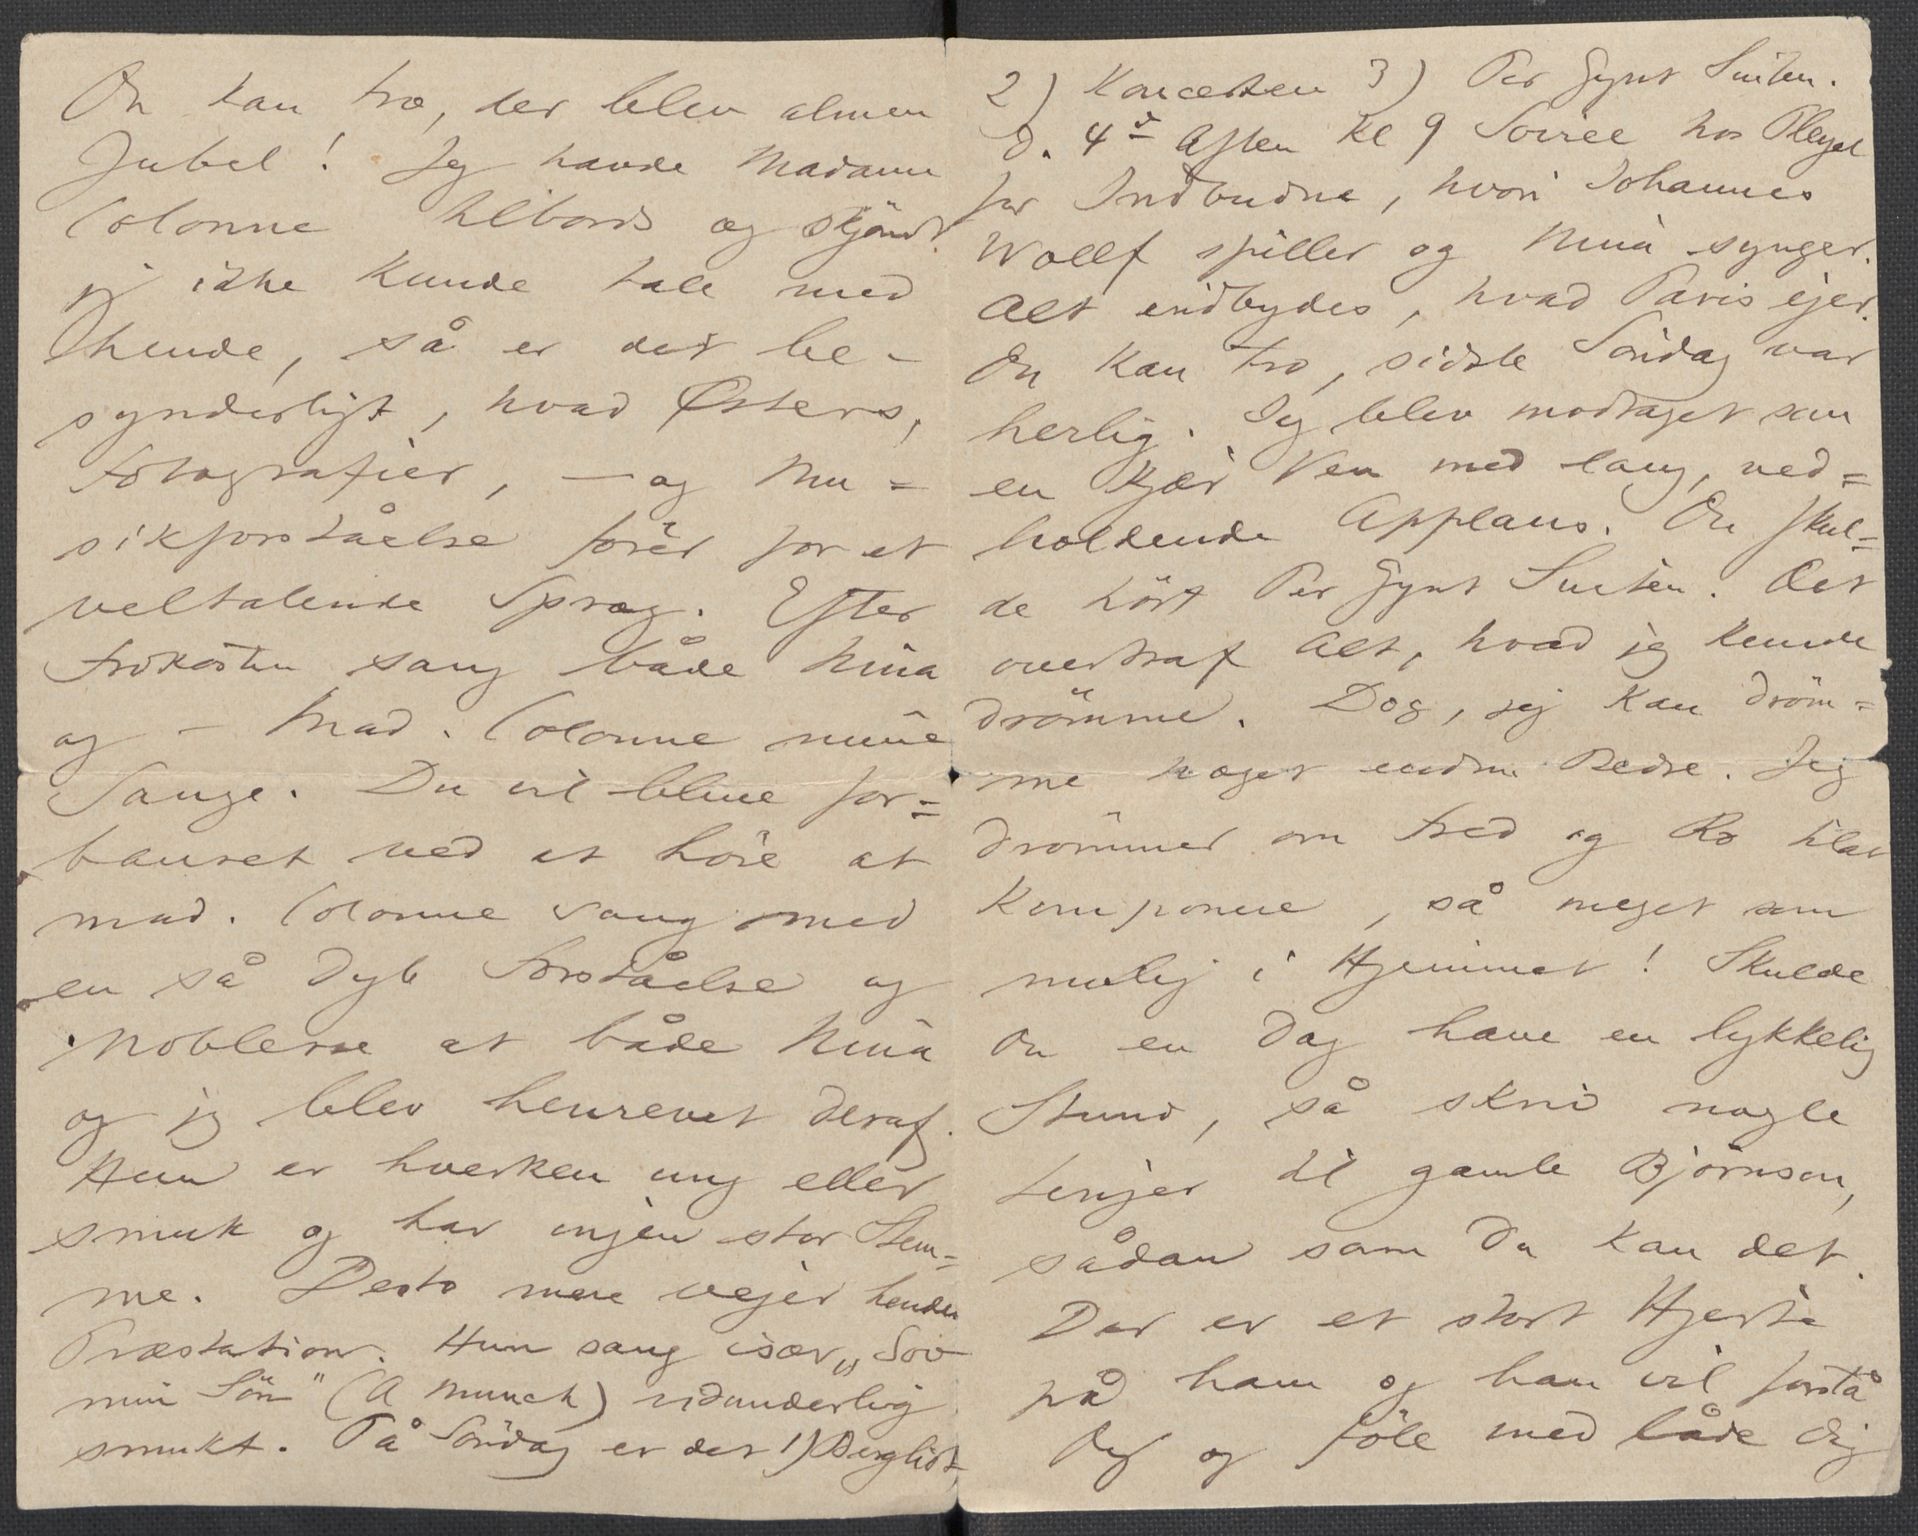 Du kan tro, der blev almen
Jubel! Jeg havde Madame
Colonne tilbords og skjønt
jeg ikke kunde tale med
hende, så er det be-
synderligt, hvad Østers,
Fotografier, — og Mu=
sikforståelse fører for et
veltalende Sprog. Efter
Frokosten sang både Nina
og – Mad. Colonne mine
Sange. Du vil blive for=
bauset ved at höre at
Mad. Colonne sang med
en så dyb Forståelse og
Noblesse at både Nina
og jeg blev henrevet deraf.
Hun er hverken ung eller
smuk og har ingen stor Stem=
me. Desto mere vejer hendes
Præstation. Hun sang især „Sov
min Sön" (A Munch) vidunderlig
smukt. På Söndag er det 1) Bergliot,
2) Koncerten 3) Per Gynt Suiten.
D. 4de Aften Kl 9 Soirée hos Pleyel
for Indbudne, hvori Johannes
Wolff spiller og Nina synger.
Alt indbydes, hvad Paris ejer.
Du kan tro, sidste Söndag var
herlig. Jeg blev modtaget som
en kjær Ven med lang, ved=
holdende Applaus. Du skul=
de hört Per Gynt Suiten. Det
overtraf Alt, hvad jeg kunde
drömme. Dog, jeg kan dröm=
me noget endnu Bedre. Jeg
drömmer om Fred og Ro til at
komponere, så meget som
mulig i Hjemmet! Skulde
Du en Dag have en lykkelig
Stund, så skriv nogle
Linjer til gamle Björnson,
sådan som Du kan det.
Der er et stort Hjerte
på ham og han vil forstå
Dig og föle med både Dig